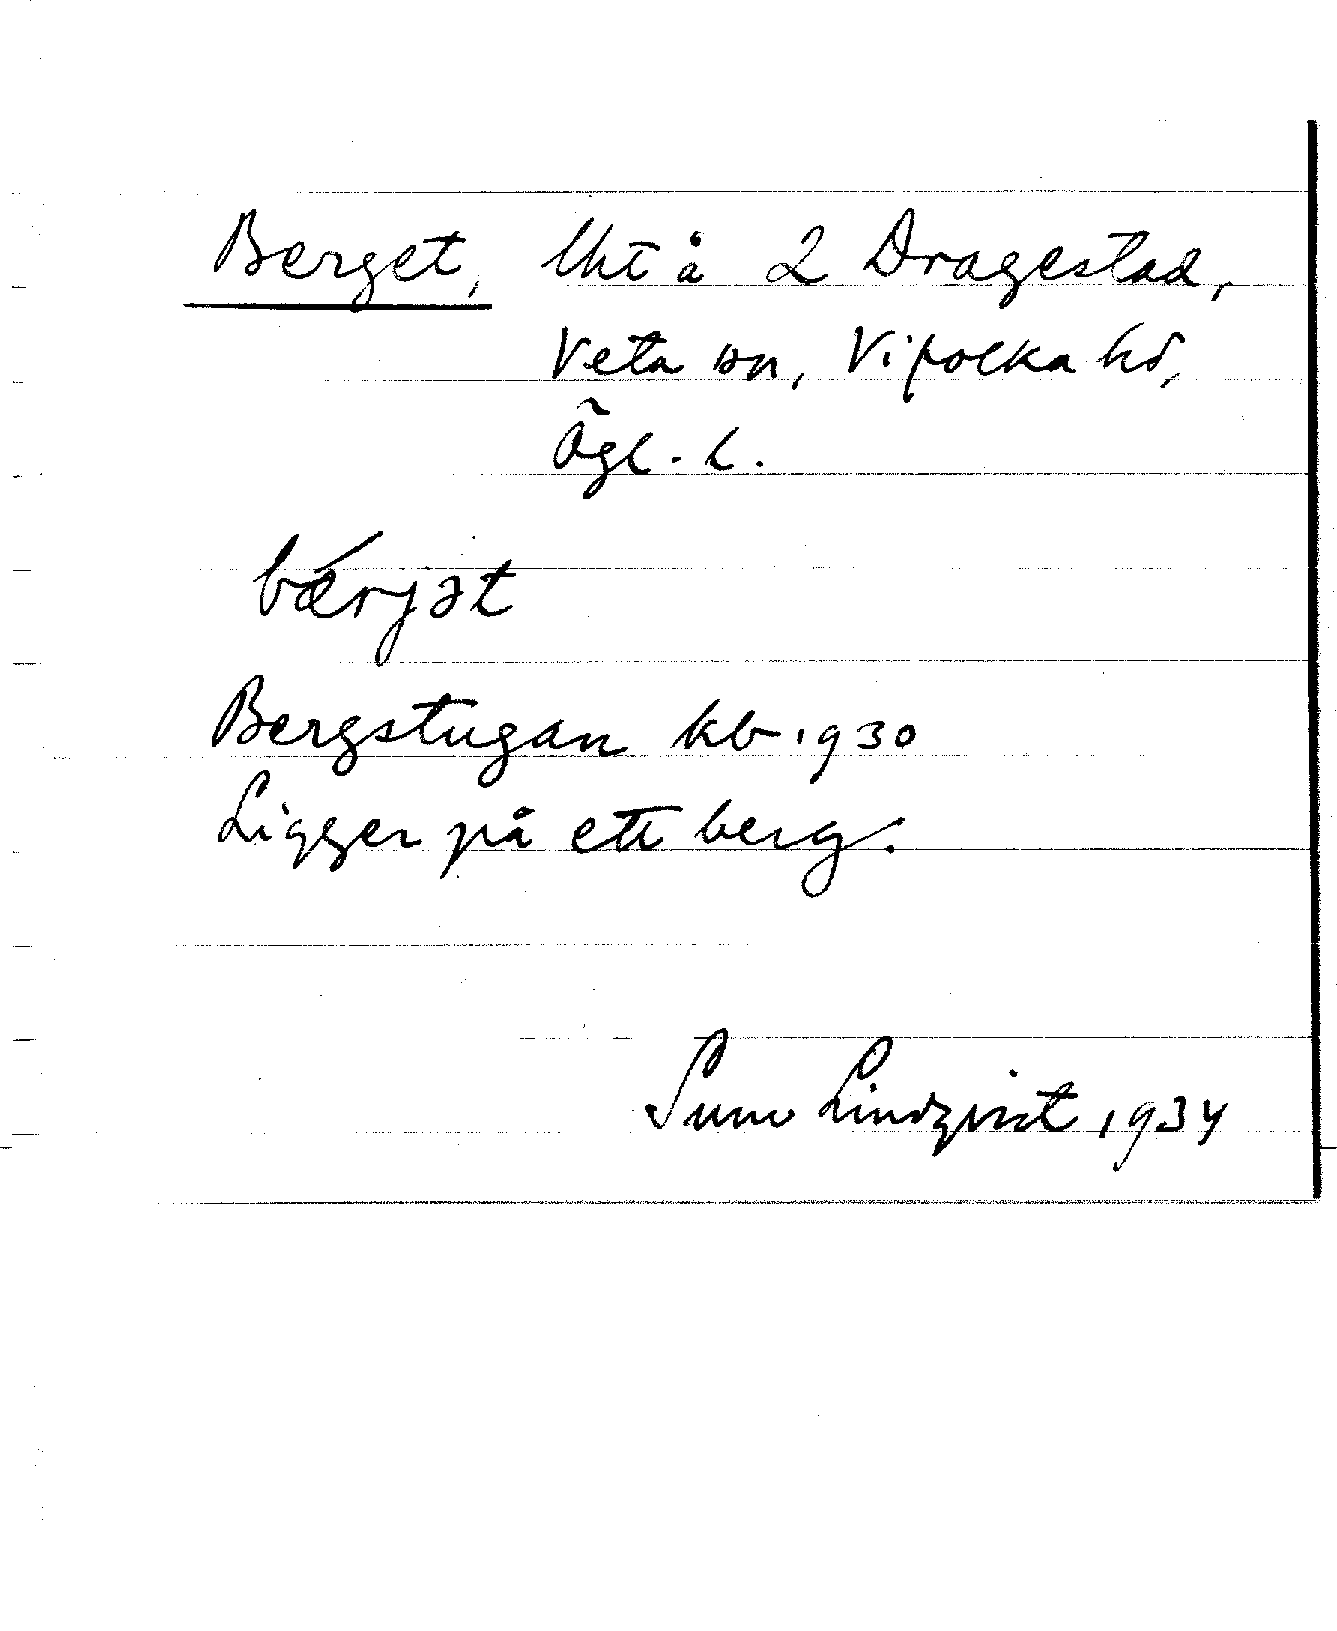 Berget, lht å 2 Dragestad,
Veta sn, Vifolka hd,
Ögl. l.
bǽrjət
Bergstugan kb 1930
Ligger på ett berg.
Sune Lindqvist 1934